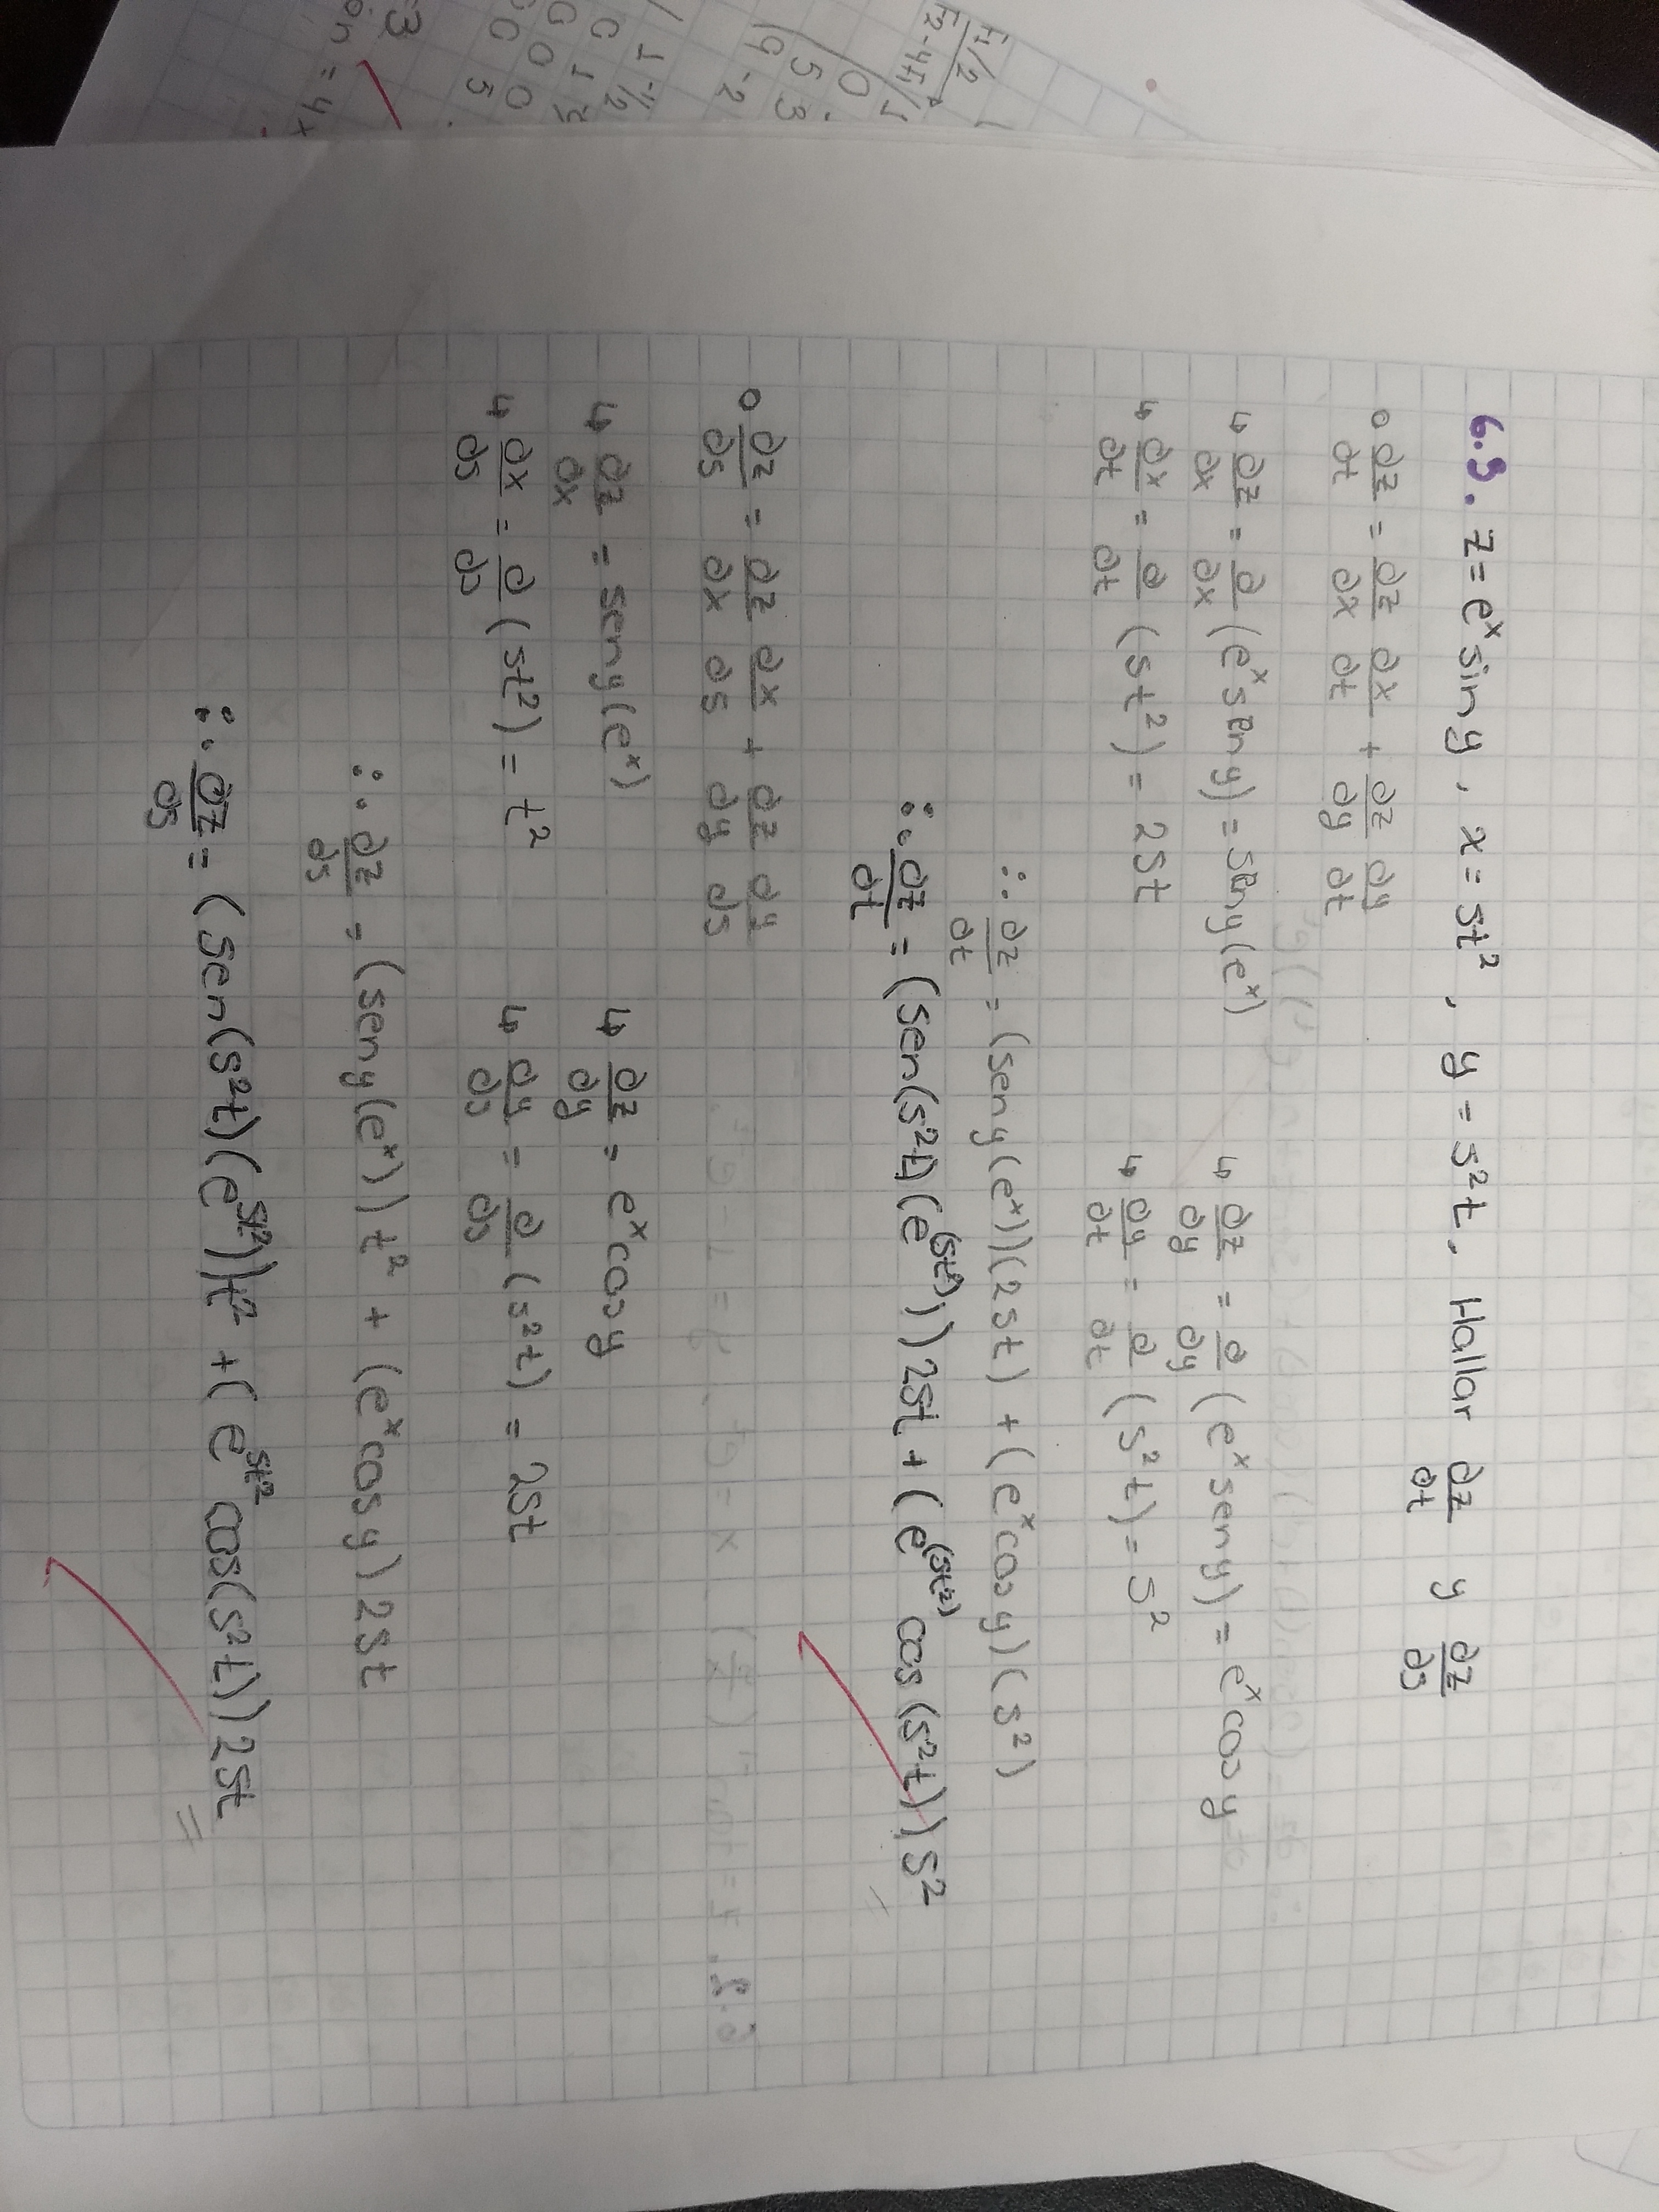 6.3. z = e^x sin y, x = st², y = s²t. Hallar ∂z/∂t y ∂z/∂s
∘ ∂z/∂t = ∂z/∂x ∂x/∂t + ∂z/∂y ∂y/∂t
↳ ∂z/∂x = ∂/∂x (e^x sen y) = sen y (e^x) ↳ ∂z/∂y = ∂/∂y (e^x sen y) = e^x cos y
↳ ∂x/∂t = ∂/∂t (st²) = 2st ↳ ∂y/∂t = ∂/∂t (s²t) = s²
∴ ∂z/∂t = (sen y (e^x))(2st) + (e^x cos y)(s²)
∴ ∂z/∂t = (sen(s²t)(e^(st²))) 2st + (e^(st²) cos (s²t)) s²
∘ ∂z/∂s = ∂z/∂x ∂x/∂s + ∂z/∂y ∂y/∂s
↳ ∂z/∂x = sen y (e^x) ↳ ∂z/∂y = e^x cos y
↳ ∂x/∂s = ∂/∂s (st²) = t² ↳ ∂y/∂s = ∂/∂s (s²t) = 2st
∴ ∂z/∂s = (sen y (e^x)) t² + (e^x cos y) 2st
∴ ∂z/∂s = (sen(s²t)(e^st²)) t² + (e^st² cos(s²t)) 2st
F1/2
F2-4F1
1
0
5 3
9 -2
1 -1/2
0 1
0 0 0
0 5
-3
= 4x